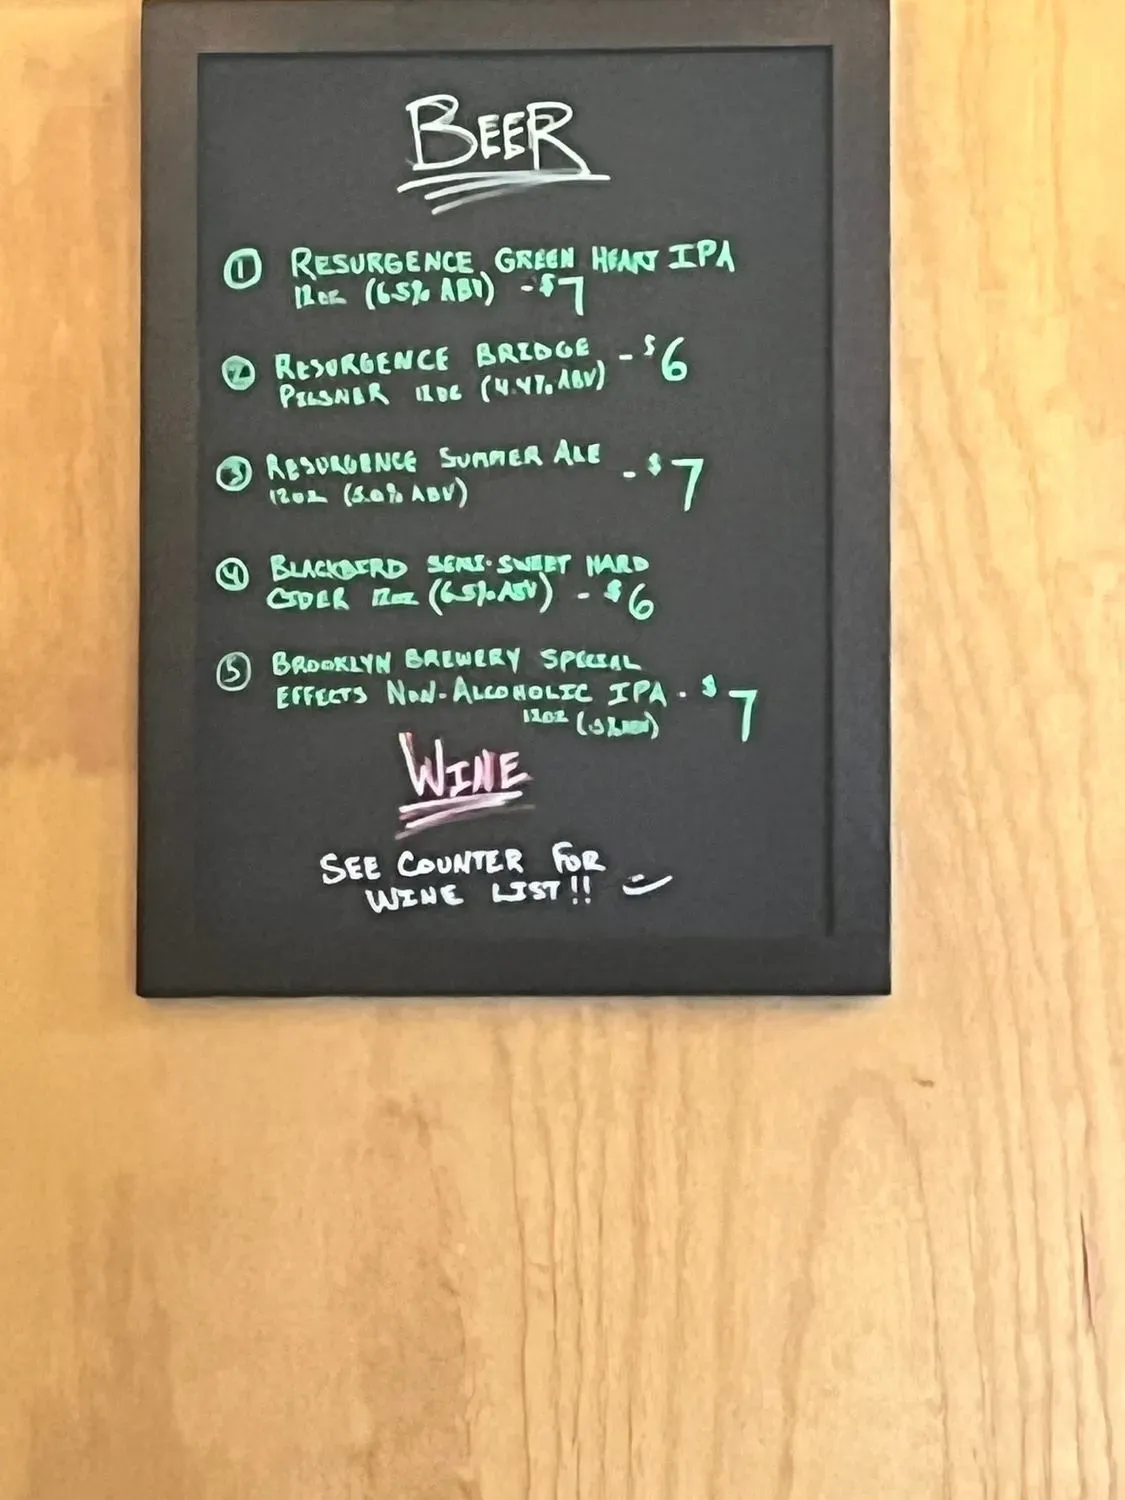 BEER
1 RESURGENCE GREEN HEART IPA
12oz (6.5% ABV) - $7
2 RESURGENCE BRIDGE - $6
PILSNER 12oz (4.4% ABV)
3 RESURGENCE SUMMER ALE - $7
12oz (5.0% ABV)
4 BLACKBIRD SEMI-SWEET HARD
CIDER 12oz (6.5% ABV) - $6
5 BROOKLYN BREWERY SPECIAL
EFFECTS NON-ALCOHOLIC IPA - $7
12oz
WINE
SEE COUNTER FOR
WINE LIST!!